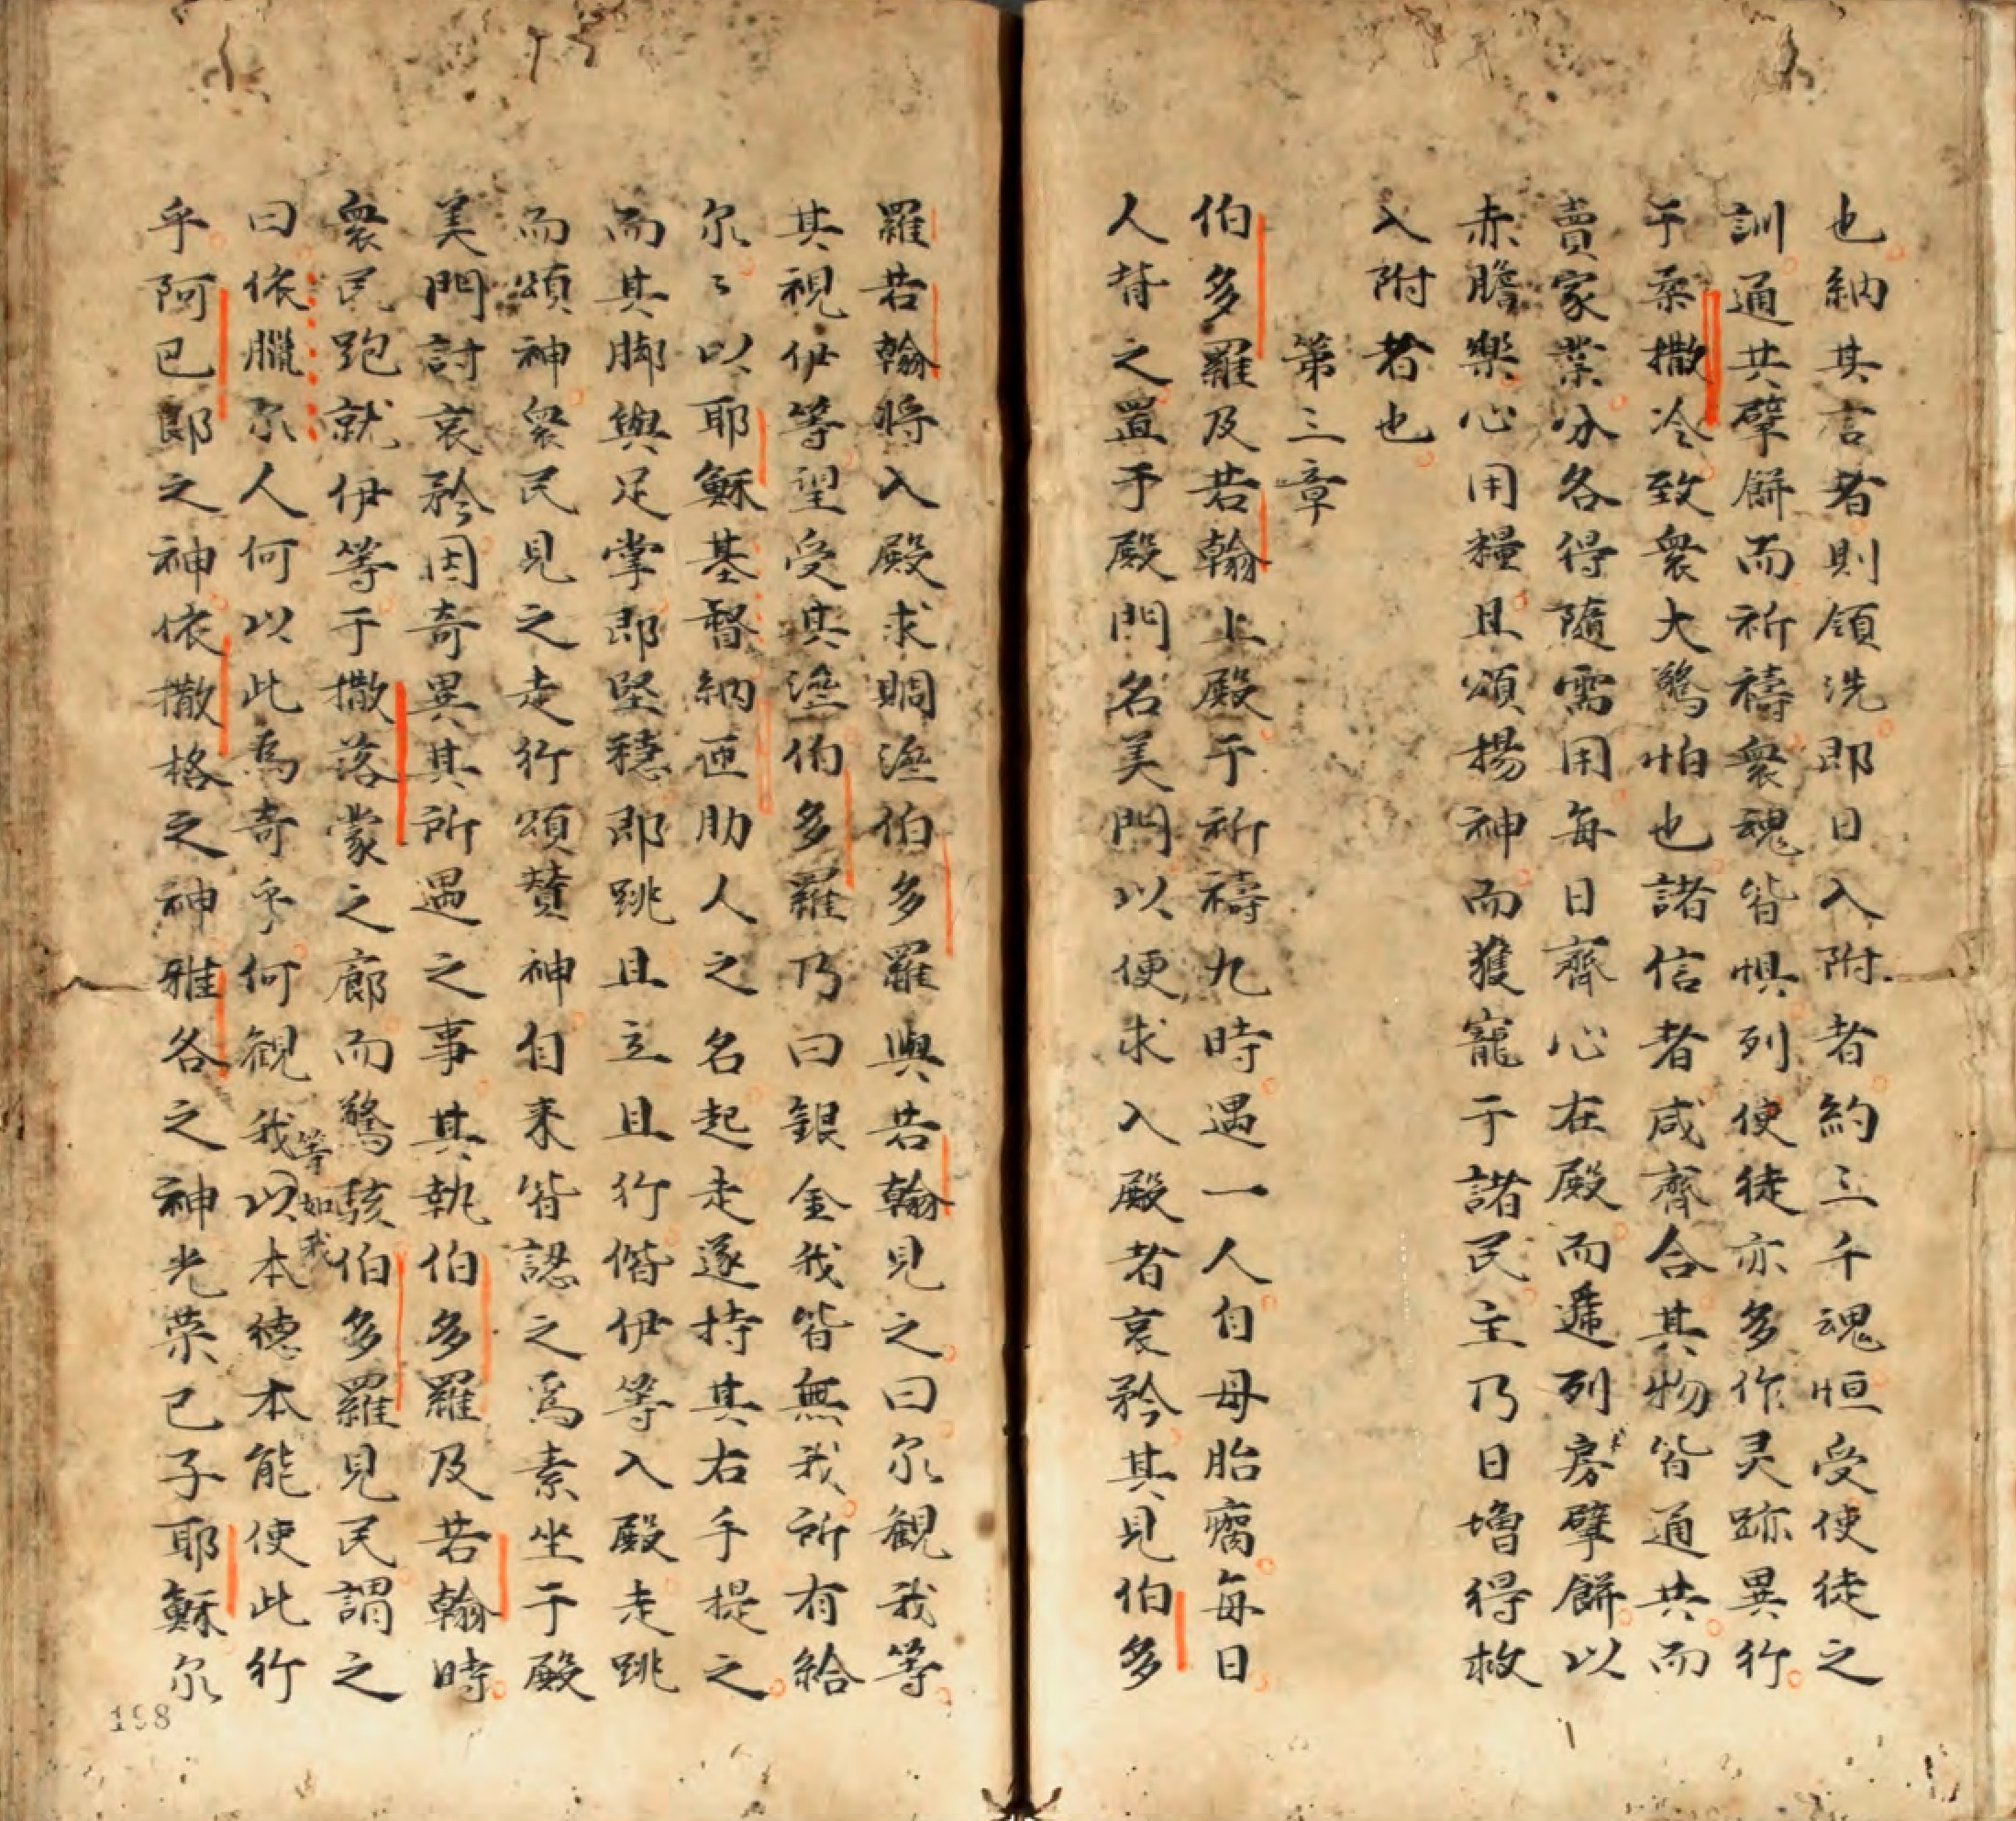 也納其言者則領洗即日入附者約三千魂恒受使徒之
訓通共擘餅而祈禱衆魂皆惧列使徒亦多作灵跡異行
于柔撒冷致衆大驚怕也諸信者咸齊合其物皆通共而
賣家業分各得隨需用每日齊心在殿而遞列房擘餅以
赤膽樂心用糧且頌揚神而獲寵于諸民主乃日增得救
入附者也
第三章
伯多羅及若翰上殿于祈禱九時遇一人自母胎瘸每日
人昔之置于殿門名美門以便求入殿者哀矜其見伯多
羅若翰將入殿求賙濟伯多羅與若翰見之曰尔觀我等
其視伊等望受其濟伯多羅乃曰銀金我皆無我所有給
尔〻以耶穌基督納匝肋人之名起走遂持其右手提之
而其脚與足掌即堅穩即跳且立且行偕伊等入殿走跳
而頌神衆民見之走行頌賛神自来皆認之爲素坐于殿
美門討哀矜因奇異其所遇之事其執伯多羅及若翰時
衆民跑就伊等于撒落蒙之廊而驚駭伯多羅見民謂之
曰依臘尔人何以此爲奇乎何観我等如我以本德本能使此行
乎阿巴郎之神依撒格之神雅各之神光荣己子耶穌尔
198